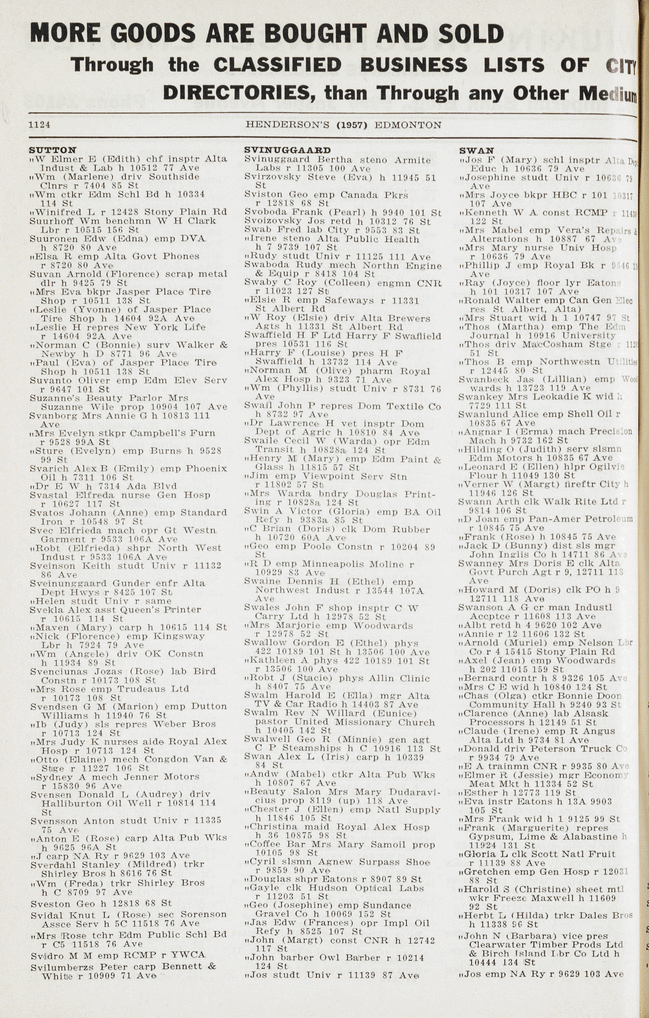 MORE GOODS ARE BOUGHT AND SOLD
Through the CLASSIFIED BUSINESS LISTS OF CITY
DIRECTORIES, than Through any Other Medium
1124 HENDERSON'S (1957) EDMONTON
SUTTON
"W Elmer E (Edith) chf insptr Alta
Indust & Lab h 10512 77 Ave
"Wm (Marlene) driv Southside
Clnrs r 7404 85 St
"Wm ctkr Edm Schl Bd h 10334
114 St
"Winifred L r 12428 Stony Plain Rd
Suurhoff Wm benchmn W H Clark
Lbr r 10515 156 St
Suuronen Edw (Edna) emp DVA
h 8720 80 Ave
"Elsa R emp Alta Govt Phones
r 8720 80 Ave
Suvan Arnold (Florence) scrap metal
dlr h 9425 79 St
"Mrs Eva bkpr Jasper Place Tire
Shop r 10511 138 St
"Leslie (Yvonne) of Jasper Place
Tire Shop h 14604 92A Ave
"Leslie H repres New York Life
r 14604 92A Ave
"Norman C (Bonnie) surv Walker &
Newby h D 8771 96 Ave
"Paul (Eva) of Jasper Place Tire
Shop h 10511 138 St
Suvanto Oliver emp Edm Elev Serv
r 9647 101 St
Suzanne's Beauty Parlor Mrs
Suzanne Wile prop 10904 107 Ave
Svanborg Mrs Annie G h 10813 111
Ave
"Mrs Evelyn stkpr Campbell's Furn
r 9528 99A St
"Sture (Evelyn) emp Burns h 9528
99 St
Svarich Alex B (Emily) emp Phoenix
Oil h 7311 106 St
"Dr E W h 7314 Ada Blvd
Svastal Elfreda nurse Gen Hosp
r 10627 117 St
Svatos Johann (Anne) emp Standard
Iron r 10548 97 St
Svec Elfrieda mach opr Gt Westn
Garment r 9533 106A Ave
"Robt (Elfrieda) shpr North West
Indust r 9533 106A Ave
Sveinson Keith studt Univ r 11132
86 Ave
Sveinunggaard Gunder enfr Alta
Dept Hwys r 8425 107 St
"Helen studt Univ r same
Svekla Alex asst Queen's Printer
r 10615 114 St
"Maven (Mary) carp h 10615 114 St
"Nick (Florence) emp Kingsway
Lbr h 7924 79 Ave
"Wm (Angele) driv OK Constn
h 11934 89 St
Svenciunas Jozas (Rose) lab Bird
Constn r 10173 108 St
"Mrs Rose emp Trudeaus Ltd
r 10173 108 St
Svendsen G M (Marion) emp Dutton
Williams h 11940 76 St
"Ib (Judy) sls repres Weber Bros
r 10713 124 St
"Mrs Judy K nurses aide Royal Alex
Hosp r 10713 124 St
"Otto (Elaine) mech Congdon Van &
Stge r 11227 106 St
"Sydney A mech Jenner Motors
r 15830 96 Ave
Svensen Donald L (Audrey) driv
Halliburton Oil Well r 10814 114
St
Svensson Anton studt Univ r 11335
75 Ave
"Anton E (Rose) carp Alta Pub Wks
h 9625 96A St
"J carp NA Ry r 9629 103 Ave
Sverdahl Stanley (Mildred) trkr
Shirley Bros h 8616 76 St
"Wm (Freda) trkr Shirley Bros
h C 8709 97 Ave
Sveston Geo h 12818 68 St
Svidal Knut L (Rose) sec Sorenson
Assce Serv h 5C 11518 76 Ave
"Mrs Rose tchr Edm Public Schl Bd
r C5 11518 76 Ave
Svidro M M emp RCMP r YWCA
Svilumberzs Peter carp Bennett &
White r 10909 71 Ave
SVINUGGAARD
Svinuggaard Bertha steno Armite
Labs r 11305 100 Ave
Svirzovsky Steve (Eva) h 11945 51
St
Sviston Geo emp Canada Pkrs
r 12818 68 St
Svoboda Frank (Pearl) h 9940 101 St
Svoizovsky Jos retd h 10312 76 St
Swab Fred lab City r 9553 83 St
"Irene steno Alta Public Health
h 7 9739 107 St
"Rudy studt Univ r 11125 111 Ave
Swaboda Rudy mech Northn Engine
& Equip r 8418 104 St
Swaby C Roy (Colleen) engmn CNR
r 11023 127 St
"Elsie R emp Safeways r 11331
St Albert Rd
"W Roy (Elsie) driv Alta Brewers
Agts h 11331 St Albert Rd
Swaffield H F Ltd Harry F Swaffield
pres 10531 116 St
"Harry F (Louise) pres H F
Swaffield h 13732 114 Ave
"Norman M (Olive) pharm Royal
Alex Hosp h 9323 71 Ave
"Wm (Phyllis) studt Univ r 8731 76
Ave
Swail John P repres Dom Textile Co
h 8732 97 Ave
"Dr Lawrence H vet insptr Dom
Dept of Agric h 10810 84 Ave
Swaile Cecil W (Warda) opr Edm
Transit h 10828a 124 St
"Henry M (Mary) emp Edm Paint &
Glass h 11815 57 St
"Jim emp Viewpoint Serv Stn
r 11802 57 St
"Mrs Warda bndry Douglas Print-
ing r 10828a 124 St
Swin A Victor (Gloria) emp BA Oil
Refy h 9383a 85 St
"C Brian (Doris) clk Dom Rubber
h 10720 60A Ave
"Geo emp Poole Constn r 10204 89
St
"R D emp Minneapolis Moline r
10929 83 Ave
Swaine Dennis H (Ethel) emp
Northwest Indust r 13544 107A
Ave
Swales John F shop insptr C W
Carry Ltd h 12978 52 St
"Mrs Marjorie emp Woodwards
r 12978 52 St
Swallow Gordon E (Ethel) phys
422 10189 101 St h 13506 100 Ave
"Kathleen A phys 422 10189 101 St
r 13506 100 Ave
"Robt J (Stacie) phys Allin Clinic
h 8407 75 Ave
Swalm Harold E (Ella) mgr Alta
TV & Car Radio h 14403 87 Ave
Swalm Rev N Willard (Eunice)
pastor United Missionary Church
h 10405 142 St
Swalwell Geo R (Minnie) gen agt
C P Steamships h C 10916 113 St
Swan Alex L (Iris) carp h 10339
84 St
"Andw (Mabel) ctkr Alta Pub Wks
h 10807 67 Ave
"Beauty Salon Mrs Mary Dudaravi-
cius prop 8119 (up) 118 Ave
"Chester J (Ellen) emp Natl Supply
h 11846 105 St
"Christina maid Royal Alex Hosp
h 36 10875 98 St
"Coffee Bar Mrs Mary Samoil prop
10105 98 St
"Cyril slsmn Agnew Surpass Shoe
r 9859 90 Ave
"Douglas shpr Eatons r 8907 89 St
"Gayle clk Hudson Optical Labs
r 11203 51 St
"Geo (Josephine) emp Sundance
Gravel Co h 10069 152 St
"Jas Edw (Frances) opr Impl Oil
Refy h 8525 107 St
"John (Margt) const CNR h 12742
117 St
"John barber Owl Barber r 10214
124 St
"Jos studt Univ r 11139 87 Ave
SWAN
"Jos F (Mary) schl insptr Alta Dep
Educ h 10636 79 Ave
"Josephine studt Univ r 10636 79
Ave
"Mrs Joyce bkpr HBC r 101 10317
107 Ave
"Kenneth W A const RCMP r
122 St
"Mrs Mabel emp Vera's Repairs &
Alterations h 10887 67 Ave
"Mrs Mary nurse Univ Hosp
r 10636 79 Ave
"Phillip J emp Royal Bk r 9546
Ave
"Ray (Joyce) floor lyr Eatons
h 101 10317 107 Ave
"Ronald Walter emp Can Gen Elec
res St Albert, Alta)
"Mrs Stuart wid h 1 10747 97 St
"Thos (Martha) emp The Edm
Journal h 10916 University
"Thos driv MacCosham Stge r
51 St
"Thos B emp Northwestn Utilities
r 12445 80 St
Swanbeck Jas (Lillian) emp Woo
wards h 13723 119 Ave
Swankey Mrs Leokadie K wid h
7729 111 St
Swanlund Alice emp Shell Oil r
10835 67 Ave
"Angnar I (Erma) mach Precision
Mach h 9732 162 St
"Hilding O (Judith) serv slsmn
Edm Motors h 10835 67 Ave
"Leonard E (Ellen) hlpr Ogilvie
Flour h 11049 130 St
"Verner W (Margt) fireftr City h
11946 126 St
Swann Arth clk Walk Rite Ltd r
9814 106 St
"D Joan emp Pan-Amer Petroleum
r 10845 75 Ave
"Frank (Rose) h 10845 75 Ave
"Jack D (Bunny) dist sls mgr
John Inglis Co h 14711 86 Ave
Swanney Mrs Doris E clk Alta
Govt Purch Agt r 9, 12711 113
Ave
"Howard M (Doris) clk PO h 9
12711 118 Ave
Swanson A G cr man Industl
Accptce r 11608 113 Ave
"Albt retd h 4 9620 102 Ave
"Annie r 12 11606 132 St
"Arnold (Muriel) emp Nelson Lbr
Co r 4 15415 Stony Plain Rd
"Axel (Jean) emp Woodwards
h 202 11015 159 St
"Bernard contr h 8 9326 105 Ave
"Mrs C E wid h 10840 124 St
"Chas (Olga) ctkr Bonnie Doon
Community Hall h 9240 93 St
"Clarence (Anne) lab Alsask
Processors h 12149 51 St
"Claude (Irene) emp R Angus
Alta Ltd h 9734 81 Ave
"Donald driv Peterson Truck Co
r 9934 79 Ave
"E A trainmn CNR r 9935 80 Ave
"Elmer R (Jessie) mgr Economy
Meat Mkt h 11334 52 St
"Esther h 12773 119 St
"Eva instr Eatons h 13A 9903
105 St
"Mrs Frank wid h 1 9125 99 St
"Frank (Marguerite) repres
Gypsum, Lime & Alabastine h
11924 131 St
"Gloria L clk Scott Natl Fruit
r 11139 88 Ave
"Gretchen emp Gen Hosp r 12031
88 St
"Harold S (Christine) sheet mtl
wkr Freeze Maxwell h 11609
92 St
"Herbt L (Hilda) trkr Dales Bros
h 11338 96 St
"John N (Barbara) vice pres
Clearwater Timber Prods Ltd
& Birch Island Lbr Co Ltd h
10444 134 St
"Jos emp NA Ry r 9629 103 Ave